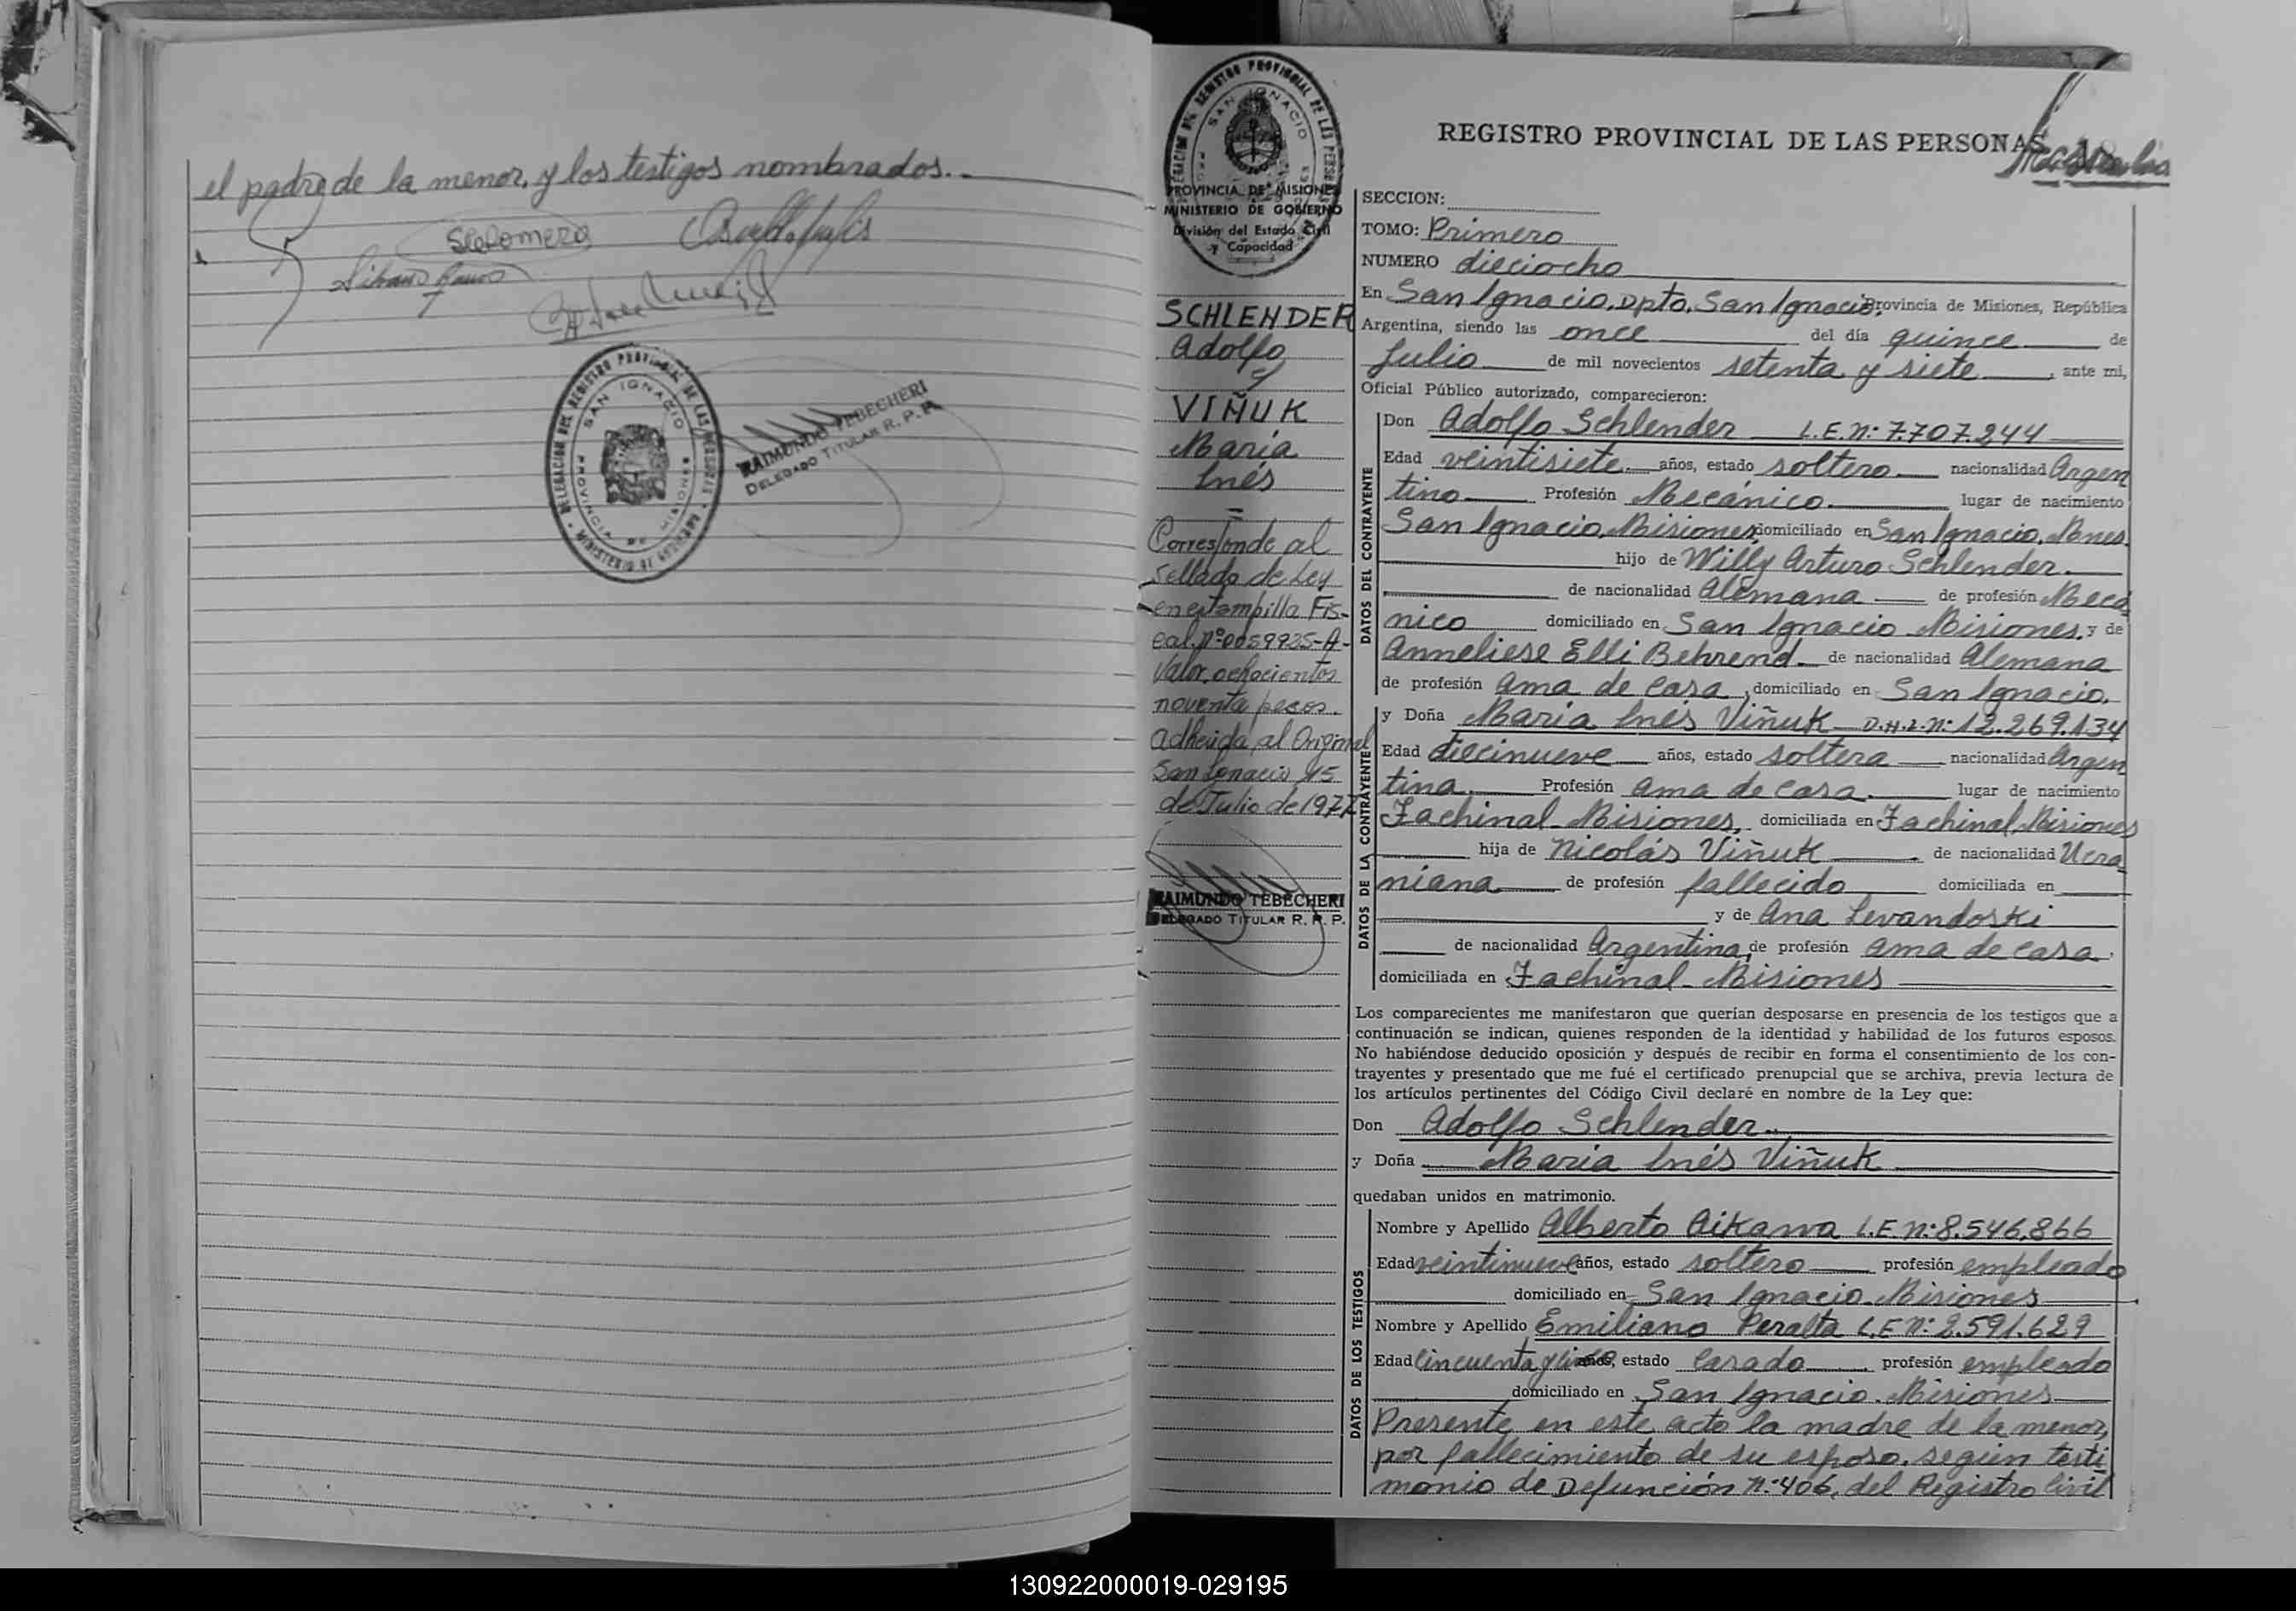 el padre de la menor, y los testigos nombrados.-
DELEGACION DEL REGISTRO PROVINCIAL DE LAS PERSONAS
SAN IGNACIO
PROVINCIA DE MISIONES
RAIMUNDO TEBECHERI
DELEGADO TITULAR R. P. P.
SAN IGNACIO
PROVINCIA DE MISIONES
MINISTERIO DE GOBIERNO
División del Estado Civil
y Capacidad
SCHLENDER
Adolfo
y
VIÑUK
María
Inés
=
Corresponde al
Sellado de Ley
en estampilla Fis-
cal. Nº 0059925-A-
Valor, ochocientos
noventa pesos.
adherida al Original
San Ignacio 15
de Julio de 1977
RAIMUNDO TEBECHERI
DELEGADO TITULAR R. P. P.
REGISTRO PROVINCIAL DE LAS PERSONAS
SECCION:
TOMO: Primero
NUMERO dieciocho
En San Ignacio, Dpto. San Ignacio, Provincia de Misiones, República
Argentina, siendo las once del día quince de
Julio de mil novecientos setenta y siete, ante mi,
Oficial Público autorizado, comparecieron:
DATOS DEL CONTRAYENTE
Don Adolfo Schlender L.E.Nº: 7.707.244
Edad veintisiete años, estado soltero nacionalidad Argen
tino Profesión Mecánico. lugar de nacimiento
San Ignacio, Misiones, domiciliado en San Ignacio, Mnes.
hijo de Willy Arturo Schlender.
de nacionalidad Alemana de profesión Mecá
nico domiciliado en San Ignacio Misiones, y de
Anneliese Elli Behrend. de nacionalidad Alemana
de profesión Ama de Casa, domiciliado en San Ignacio.
DATOS DE LA CONTRAYENTE
y Doña María Inés Viñuk D.N.I.Nº: 12.269.134
Edad diecinueve años, estado soltera nacionalidad Argen
tina. Profesión Ama de Casa. lugar de nacimiento
Fachinal-Misiones, domiciliada en Fachinal, Misiones
hija de Nicolás Viñuk de nacionalidad Ucra
niana de profesión fallecido domiciliada en
y de Ana Levandoski
de nacionalidad Argentina, de profesión Ama de Casa.
domiciliada en Fachinal-Misiones
Los comparecientes me manifestaron que querían desposarse en presencia de los testigos que a
continuación se indican, quienes responden de la identidad y habilidad de los futuros esposos.
No habiéndose deducido oposición y después de recibir en forma el consentimiento de los con-
trayentes y presentado que me fué el certificado prenupcial que se archiva, previa lectura de
los artículos pertinentes del Código Civil declaré en nombre de la Ley que:
Don Adolfo Schlender.
y Doña María Inés Viñuk
quedaban unidos en matrimonio.
DATOS DE LOS TESTIGOS
Nombre y Apellido Alberto Aikawa L.E.Nº: 8.546.866
Edad veintinueve años, estado soltero profesión empleado
domiciliado en San Ignacio-Misiones
Nombre y Apellido Emiliano Peralta L.E Nº: 2.591.629
Edad Cincuenta y cinco años, estado Casado profesión empleado
domiciliado en San Ignacio-Misiones
Presente en este acto la madre de la menor,
por fallecimiento de su esposo, según testi
monio de Defunción Nº: 406, del Registro Civil
130922000019-029195